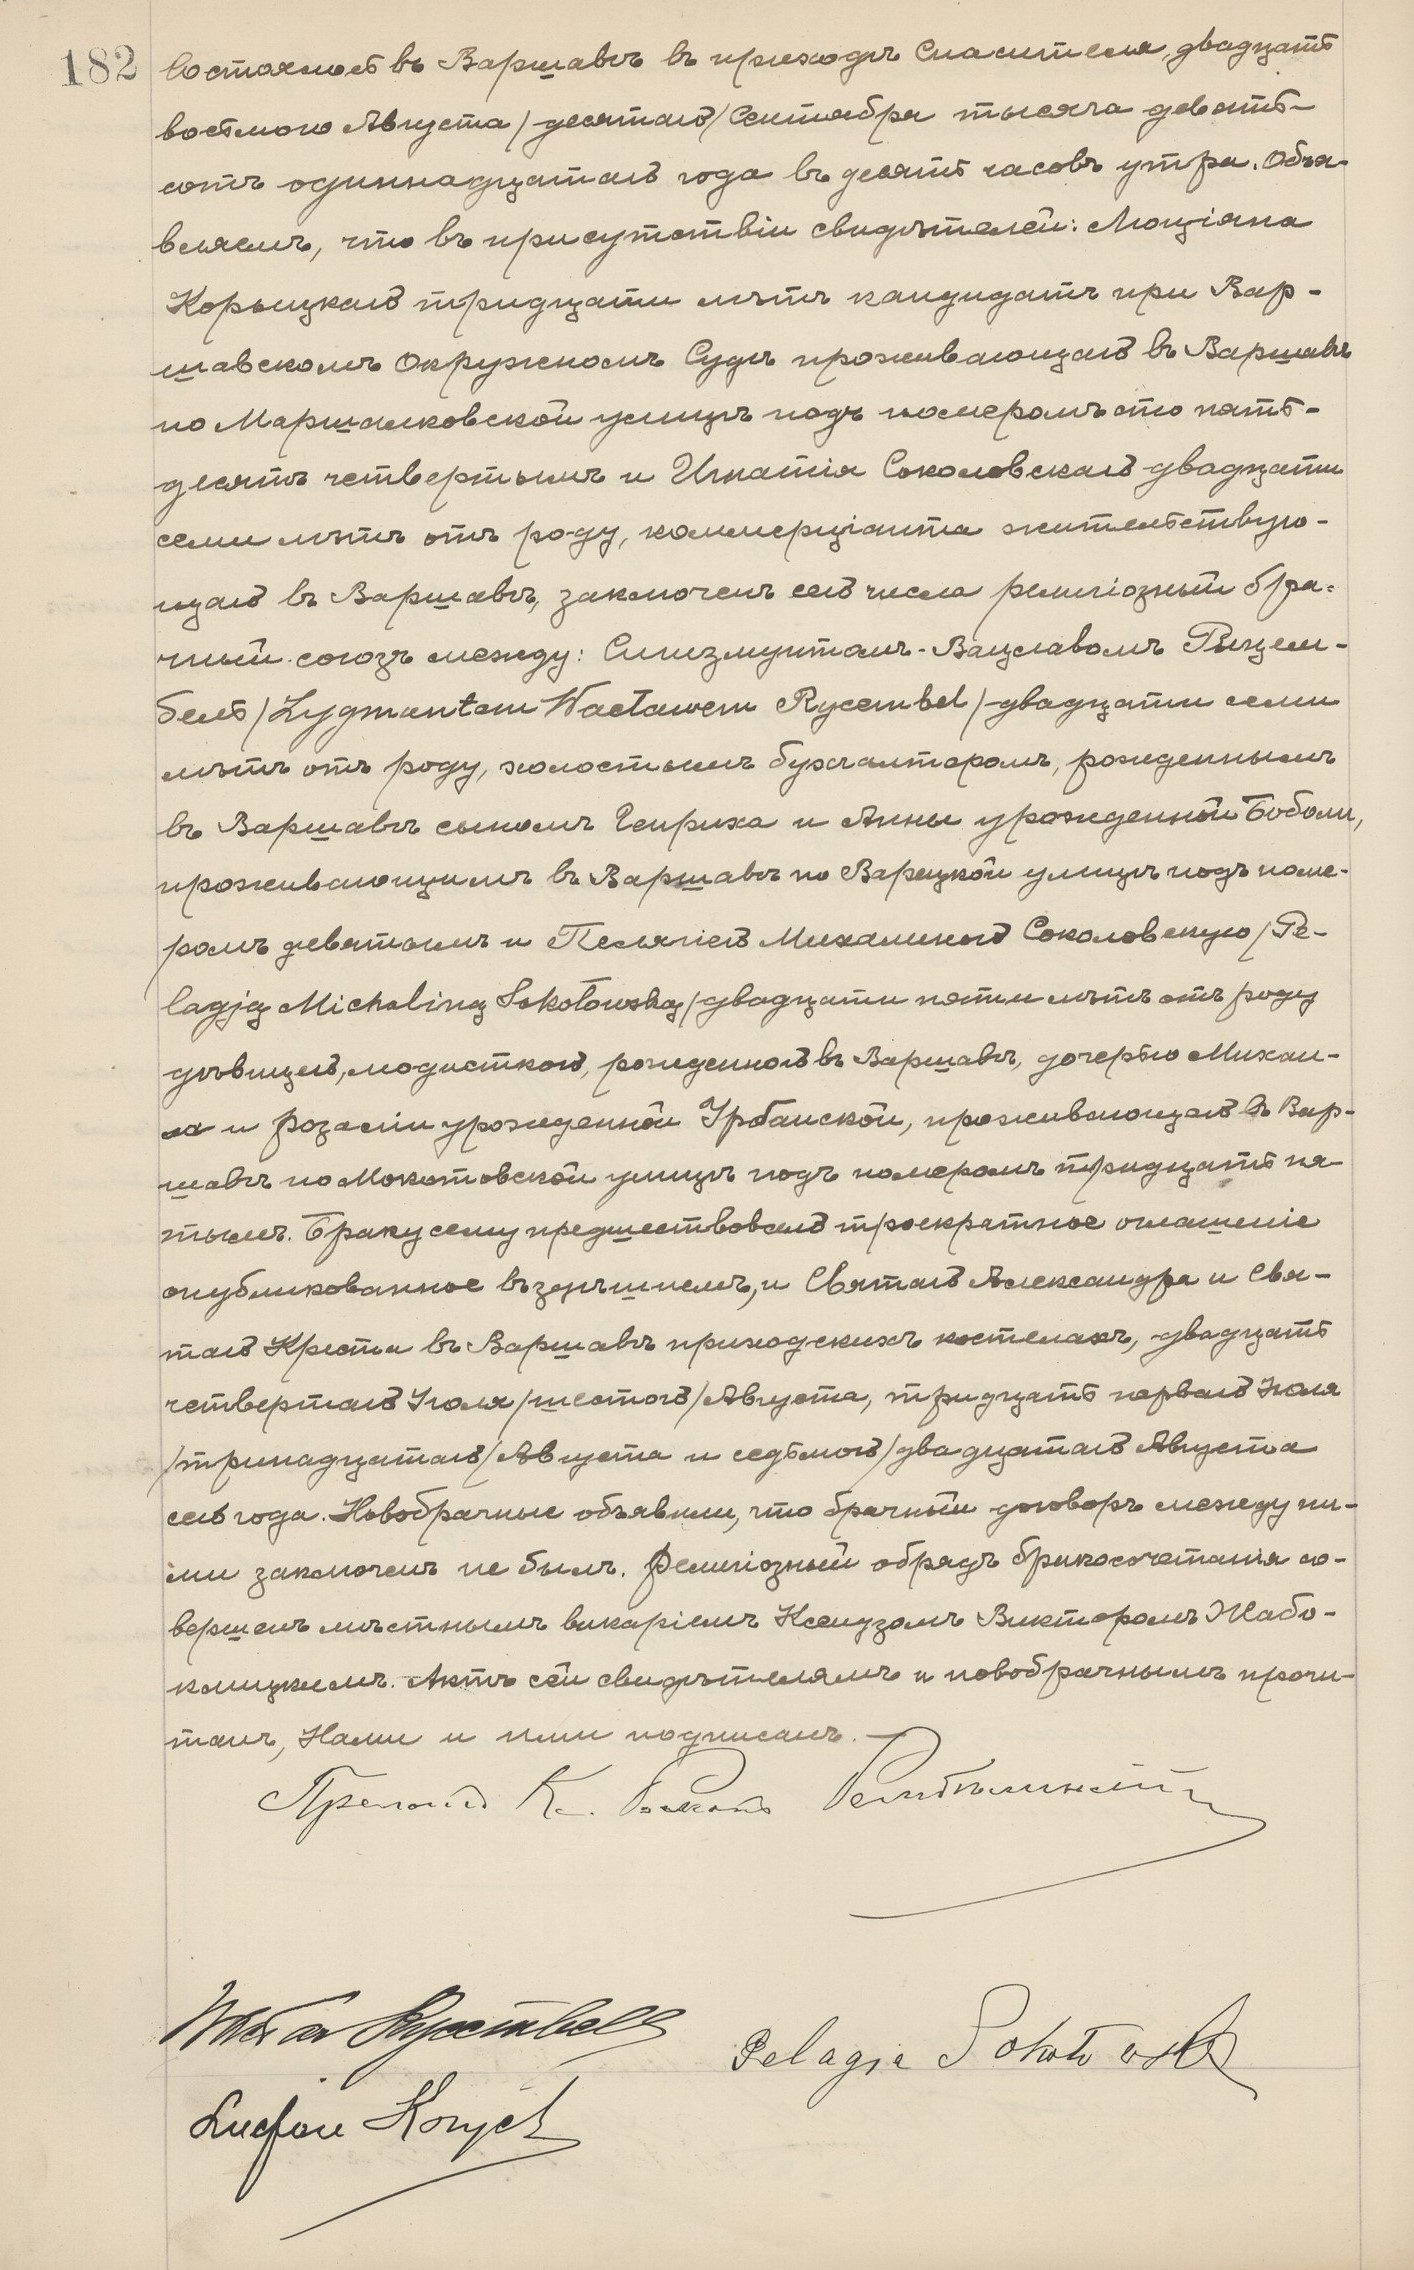 182
Состоялось въ Варшавѣ въ приходѣ Спасителя, двадцать
восьмого Августа /десятаго/ Сентября тысяча девять-
сотъ одиннадцатаго года въ десять часовъ утра. Объя-
вляемъ, что въ присутствіи свидѣтелей: Люціяна
Корыцкаго тридцати лѣтъ кандидатъ при Вар-
шавскомъ Окружномъ Судѣ проживающаго въ Варшавѣ
по Маршалковской улицѣ подъ номеромъ сто пять-
десятъ четвертымъ и Игнатія Соколовскаго двадцати
семи лѣтъ отъ роду, коммерціанта жительствую-
щаго въ Варшавѣ, заключенъ сего числа религіозный бра-
чный союзъ между: Сигизмунтомъ-Вацлавомъ Рыцем-
бель /Zygmuntem Wacławem Rycembel/ двадцати семи
лѣтъ отъ роду, холостымъ бухгалтеромъ, рожденнымъ
въ Варшавѣ сыномъ Генриха и Анны урожденной Боболи,
проживающимъ въ Варшавѣ по Варецкой улицѣ подъ номе-
ромъ девятымъ и Пелягіею Михалиною Соколовскую /Pe-
lagją Michaliną Sokołowską/ двадцати пяти лѣтъ отъ роду
дѣвицею, модисткою, рожденною въ Варшавѣ, дочерью Михаи-
ла и Розаліи урожденной Урбанской, проживающаго въ Вар-
шавѣ по Мокотовской улицѣ подъ номеромъ тридцать пя-
тымъ. Браку сему предшествовало троекратное оглашеніе
опубликованное въ здѣшнемъ, и Святаго Александра и Свя-
таго Креста въ Варшавѣ приходскихъ костелахъ, двадцать
четвертаго Іюля /шестого/ Августа, тридцать перваго Іюля
/тринадцатаго/ Августа и седьмого /двадцатаго Августа
сего года. Новобрачные объявили, что брачный договоръ между ни-
ми заключенъ не былъ. Религіозный обрядъ бракосочетанія со-
вершенъ мѣстнымъ викаріемъ Ксендзомъ Викторомъ Жабо-
клицкимъ. Актъ сей свидѣтелямъ и новобрачнымъ прочи-
танъ, Нами и ими подписанъ.
Прелатъ К. Рохъ Рембѣлинскій
Rycembel
Pelagja Sokołowska
Lucjan Koryck